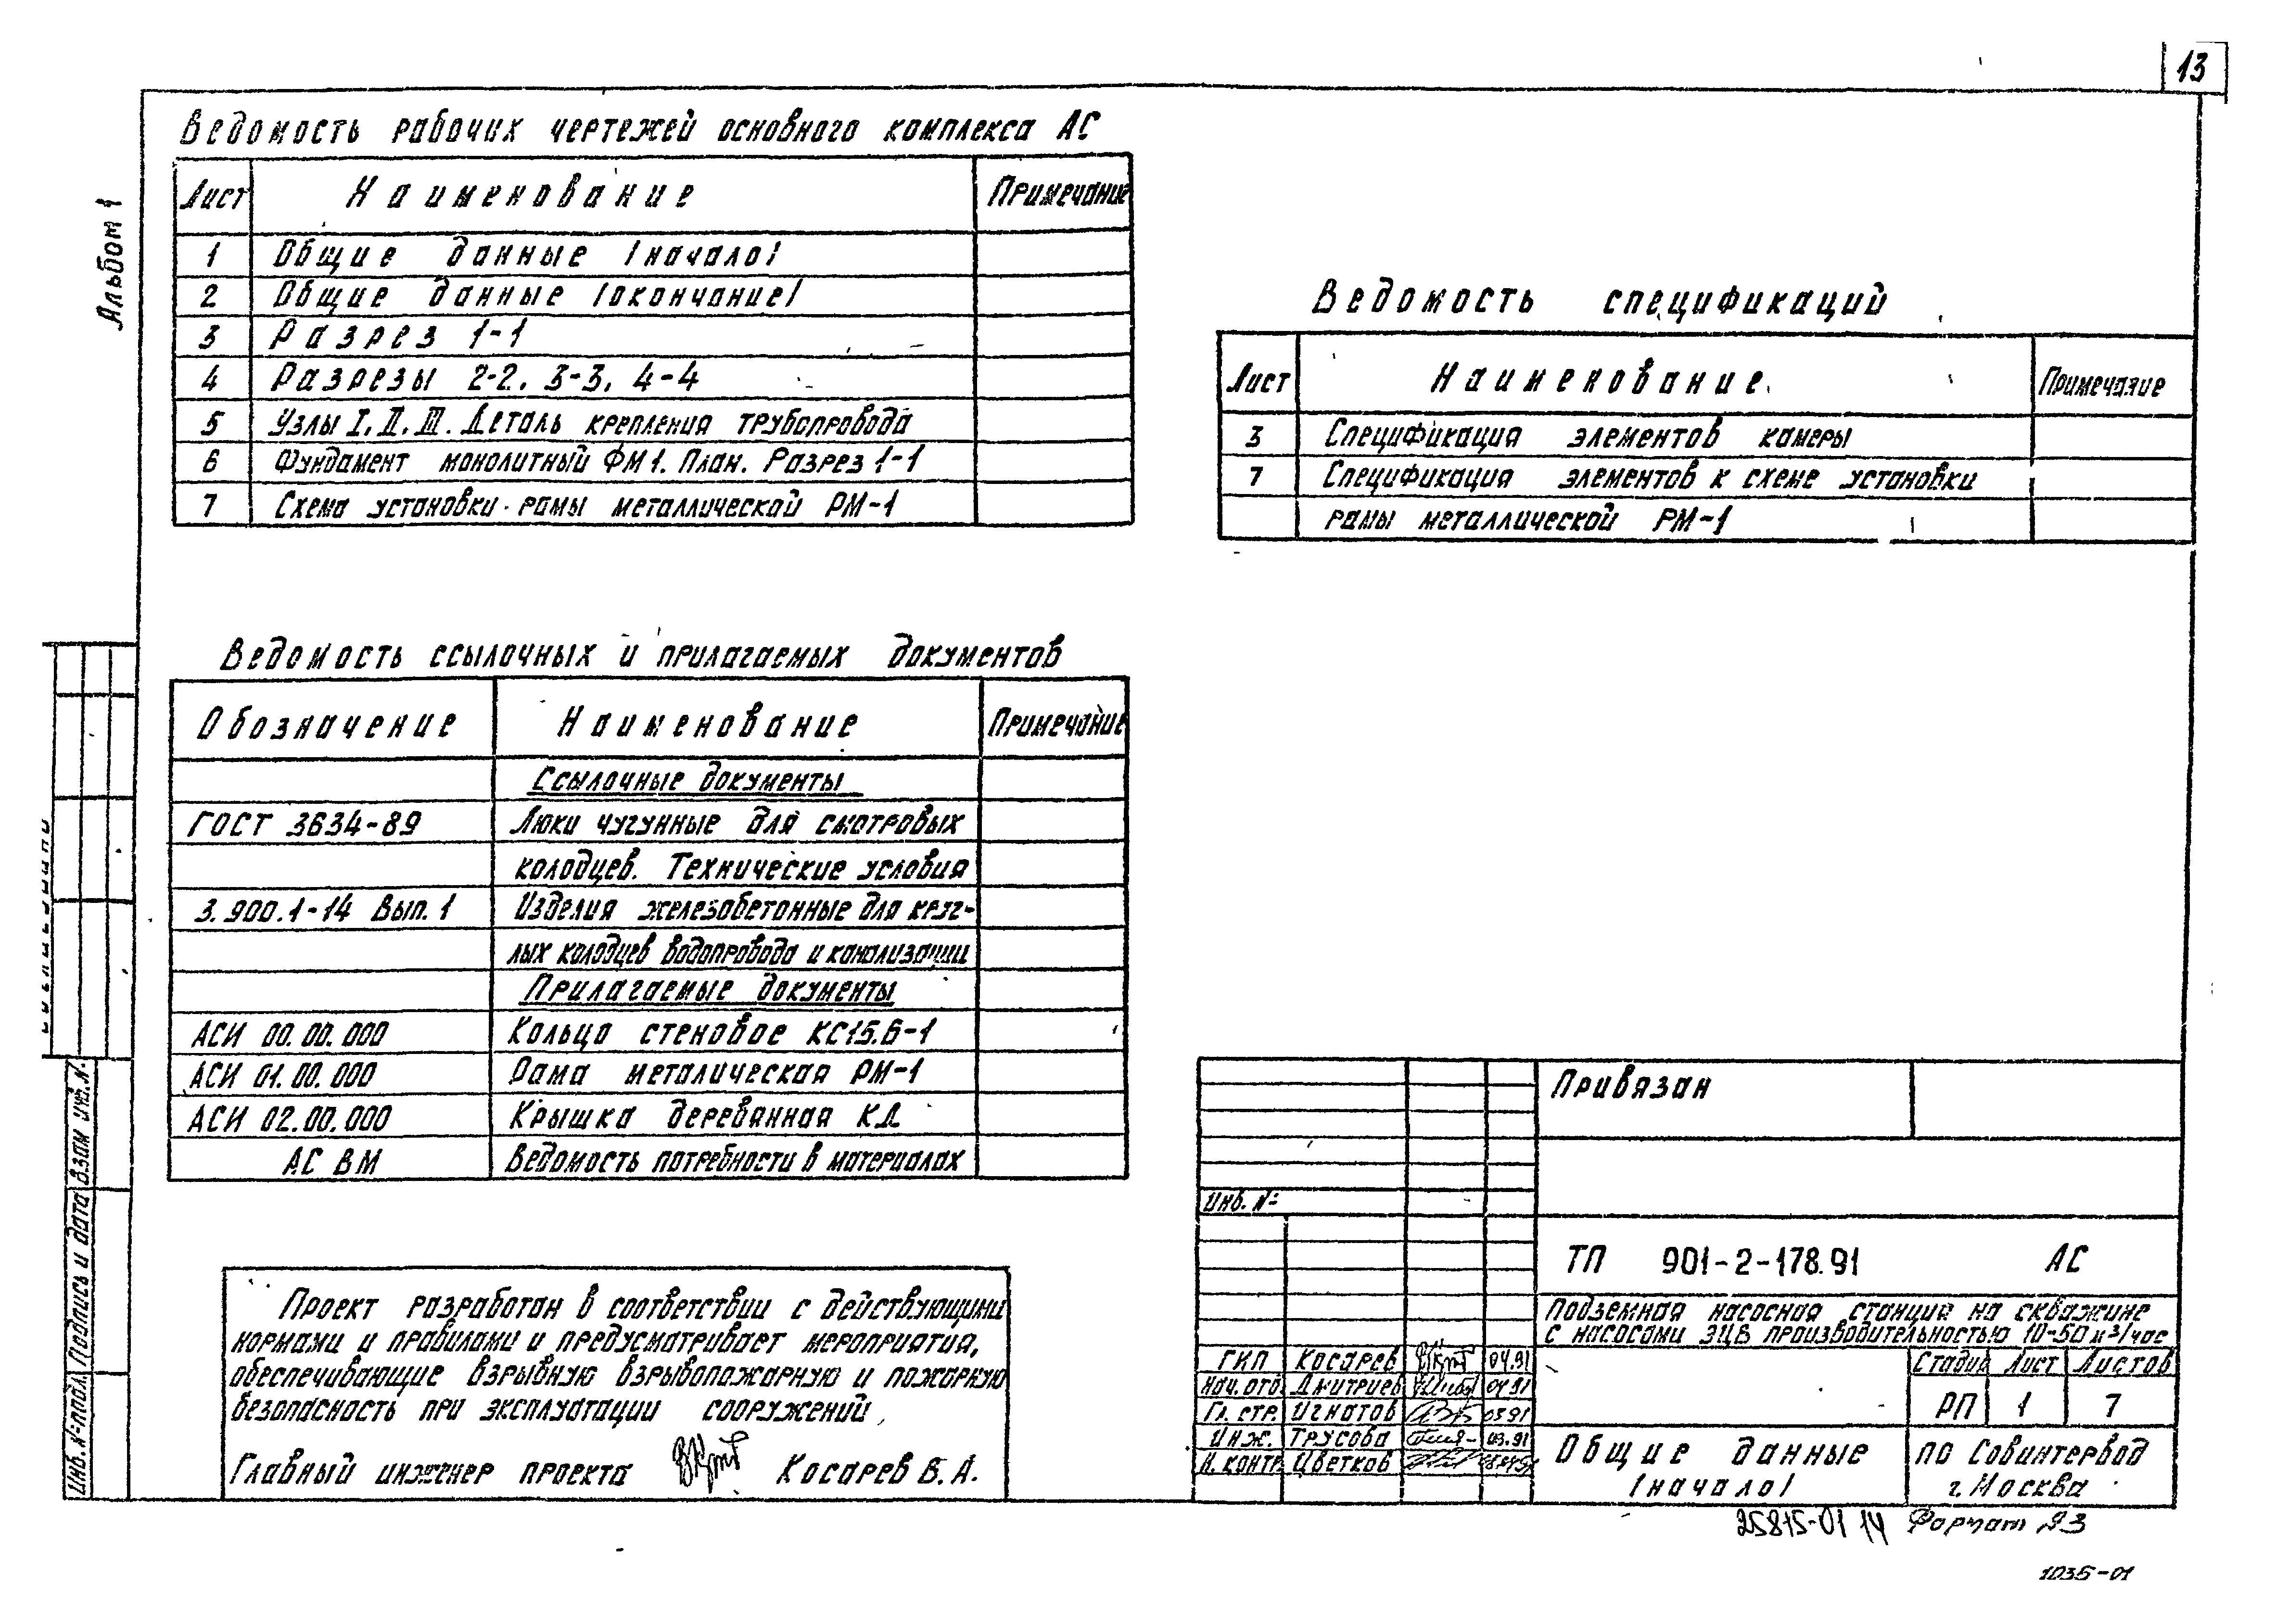 13
Альбом 1
Ведомость рабочих чертежей основного комплекса АС
Лист Наименование Примечание
1 Общие данные /начало/
2 Общие данные /окончание/
3 Разрез 1-1
4 Разрезы 2-2, 3-3, 4-4
5 Узлы I, II, III. Деталь крепления трубопровода
6 Фундамент монолитный ФМ1. План. Разрез 1-1
7 Схема установки рамы металлической РМ-1
Ведомость спецификаций
Лист Наименование Примечание
3 Спецификация элементов камеры
7 Спецификация элементов к схеме установки
рамы металлической РМ-1
Ведомость ссылочных и прилагаемых документов
Обозначение Наименование Примечание
Ссылочные документы
ГОСТ 3634-89 Люки чугунные для смотровых
колодцев. Технические условия
3.900.1-14 Вып. 1 Изделия железобетонные для круг-
лых колодцев водопровода и канализации
Прилагаемые документы
АСИ 00.00.000 Кольцо стеновое КС15.6-1
АСИ 01.00.000 Рама металическая РМ-1
АСИ 02.00.000 Крышка деревянная КД
АС ВМ Ведомость потребности в материалах
Проект разработан в соответствии с действующими
нормами и правилами и предусматривает мероприятия,
обеспечивающие взрывную взрывопожарную и пожарную
безопасность при эксплуатации сооружений
Главный инженер проекта Косарев В. А.
Инв. № подл. Подпись и дата Взам инв. №
Привязан
Инв. №
ТП 901-2-178.91 АС
Подземная насосная станция на скважине
с насосами ЭЦВ производительностью 10-50 м³/час
ГИП Косарев 04.91
Нач. отд. Дмитриев 04.91
Гл. стр. Игнатов 03.91
Инж. Трусова 03.91
Н. контр. Цветков
Стадия Лист Листов
РП 1 7
Общие данные
/начало/
ПО Совинтервод
г. Москва
25815-01 14 Формат А3
1035-01